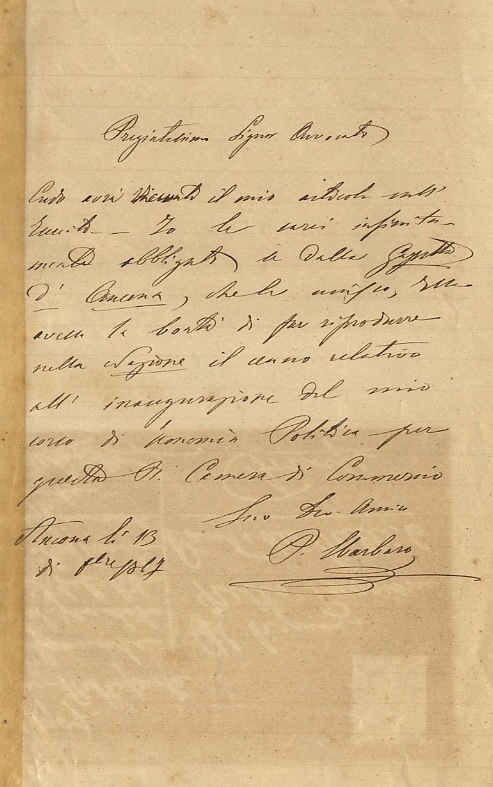 Pregiatissimo Signor Avvocato
Credo avrà ricevuto il mio articolo sull'
Io le sarei infinita-
mente obbligato se dalla Gazzetta
d' Ancona, che le unisco, Ella
avesse la bontà di far riprodurre
nella Nazione il cenno relativo
all' inaugurazione del mio
corso di Economia Politica per
questa R. Camera di Commercio
Suo Dev. Amico
P. Sbarbaro
Ancona li 13
di